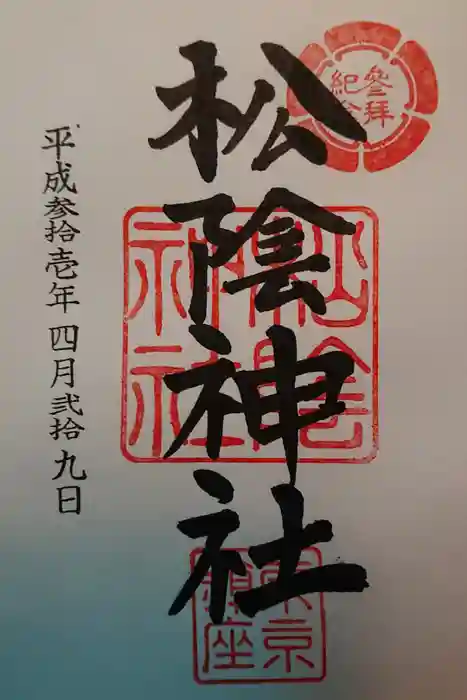 參拜
紀念
松陰神社
松陰
神社
東京
鎮座
平成参拾壱年四月弐拾九日